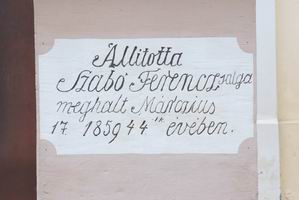 Állitotta
Szabó Ferencz szolga
meghalt Március
17. 1859 44ik évében.